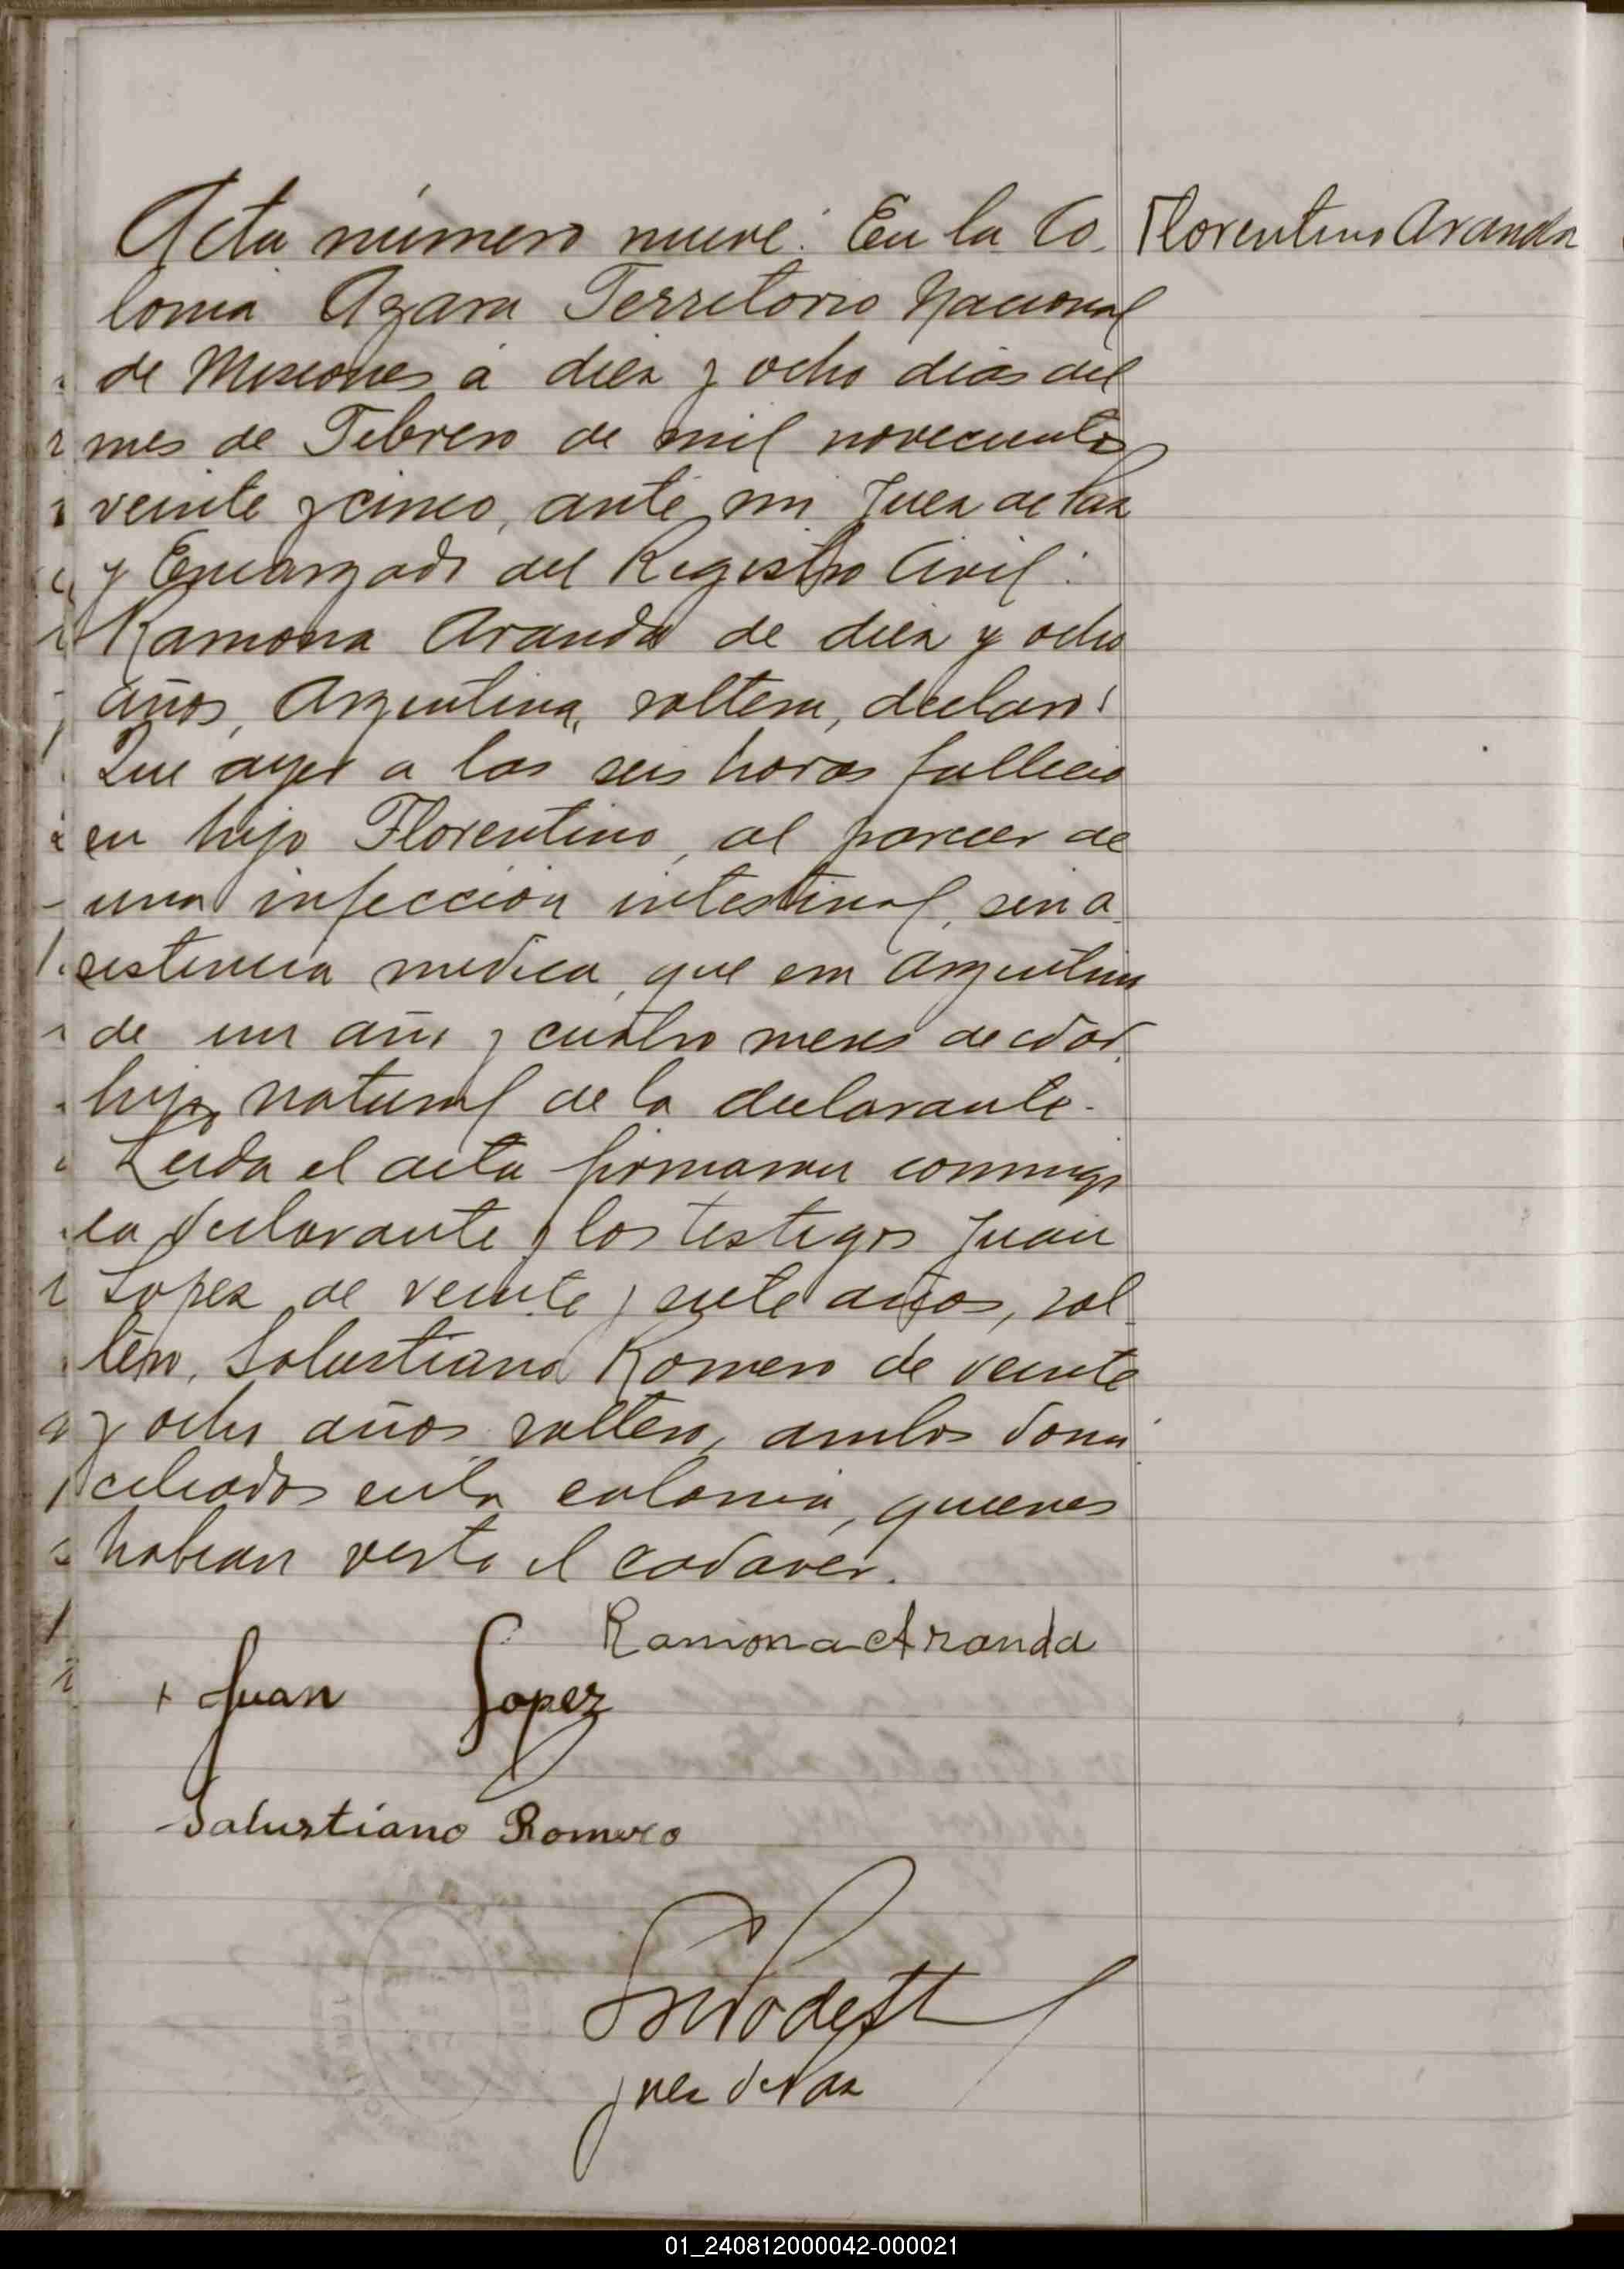 Acta número nueve: En la Co-
Florentino Aranda
lonia Azara Territorio Nacional
de Misiones a diez y ocho dias del
mes de Febrero de mil novecientos
veinte y cinco, ante mi Juez de Paz
y Encargado del Registro Civil:
Ramona Aranda de diez y ocho
años, Argentina, soltera, declaro:
Que ayer a las seis horas fallecio
su hijo Florentino, al parecer de
una infeccion intestinal, sin a-
sistencia medica, que era Argentino
de un año y cuatro meses de edad,
hijo natural de la declarante.
Leida el acta firmaron conmigo
la declarante y los testigos Juan
Lopez de veinte y siete años, sol-
tero, Salustiano Romero de veinte
y ocho años soltero, ambos domi
ciliados en la colonia, quienes
habian visto el cadaver.
Ramona Aranda
+ Juan Lopez
Salustiano Romero
Juez de Paz
01_240812000042-000021